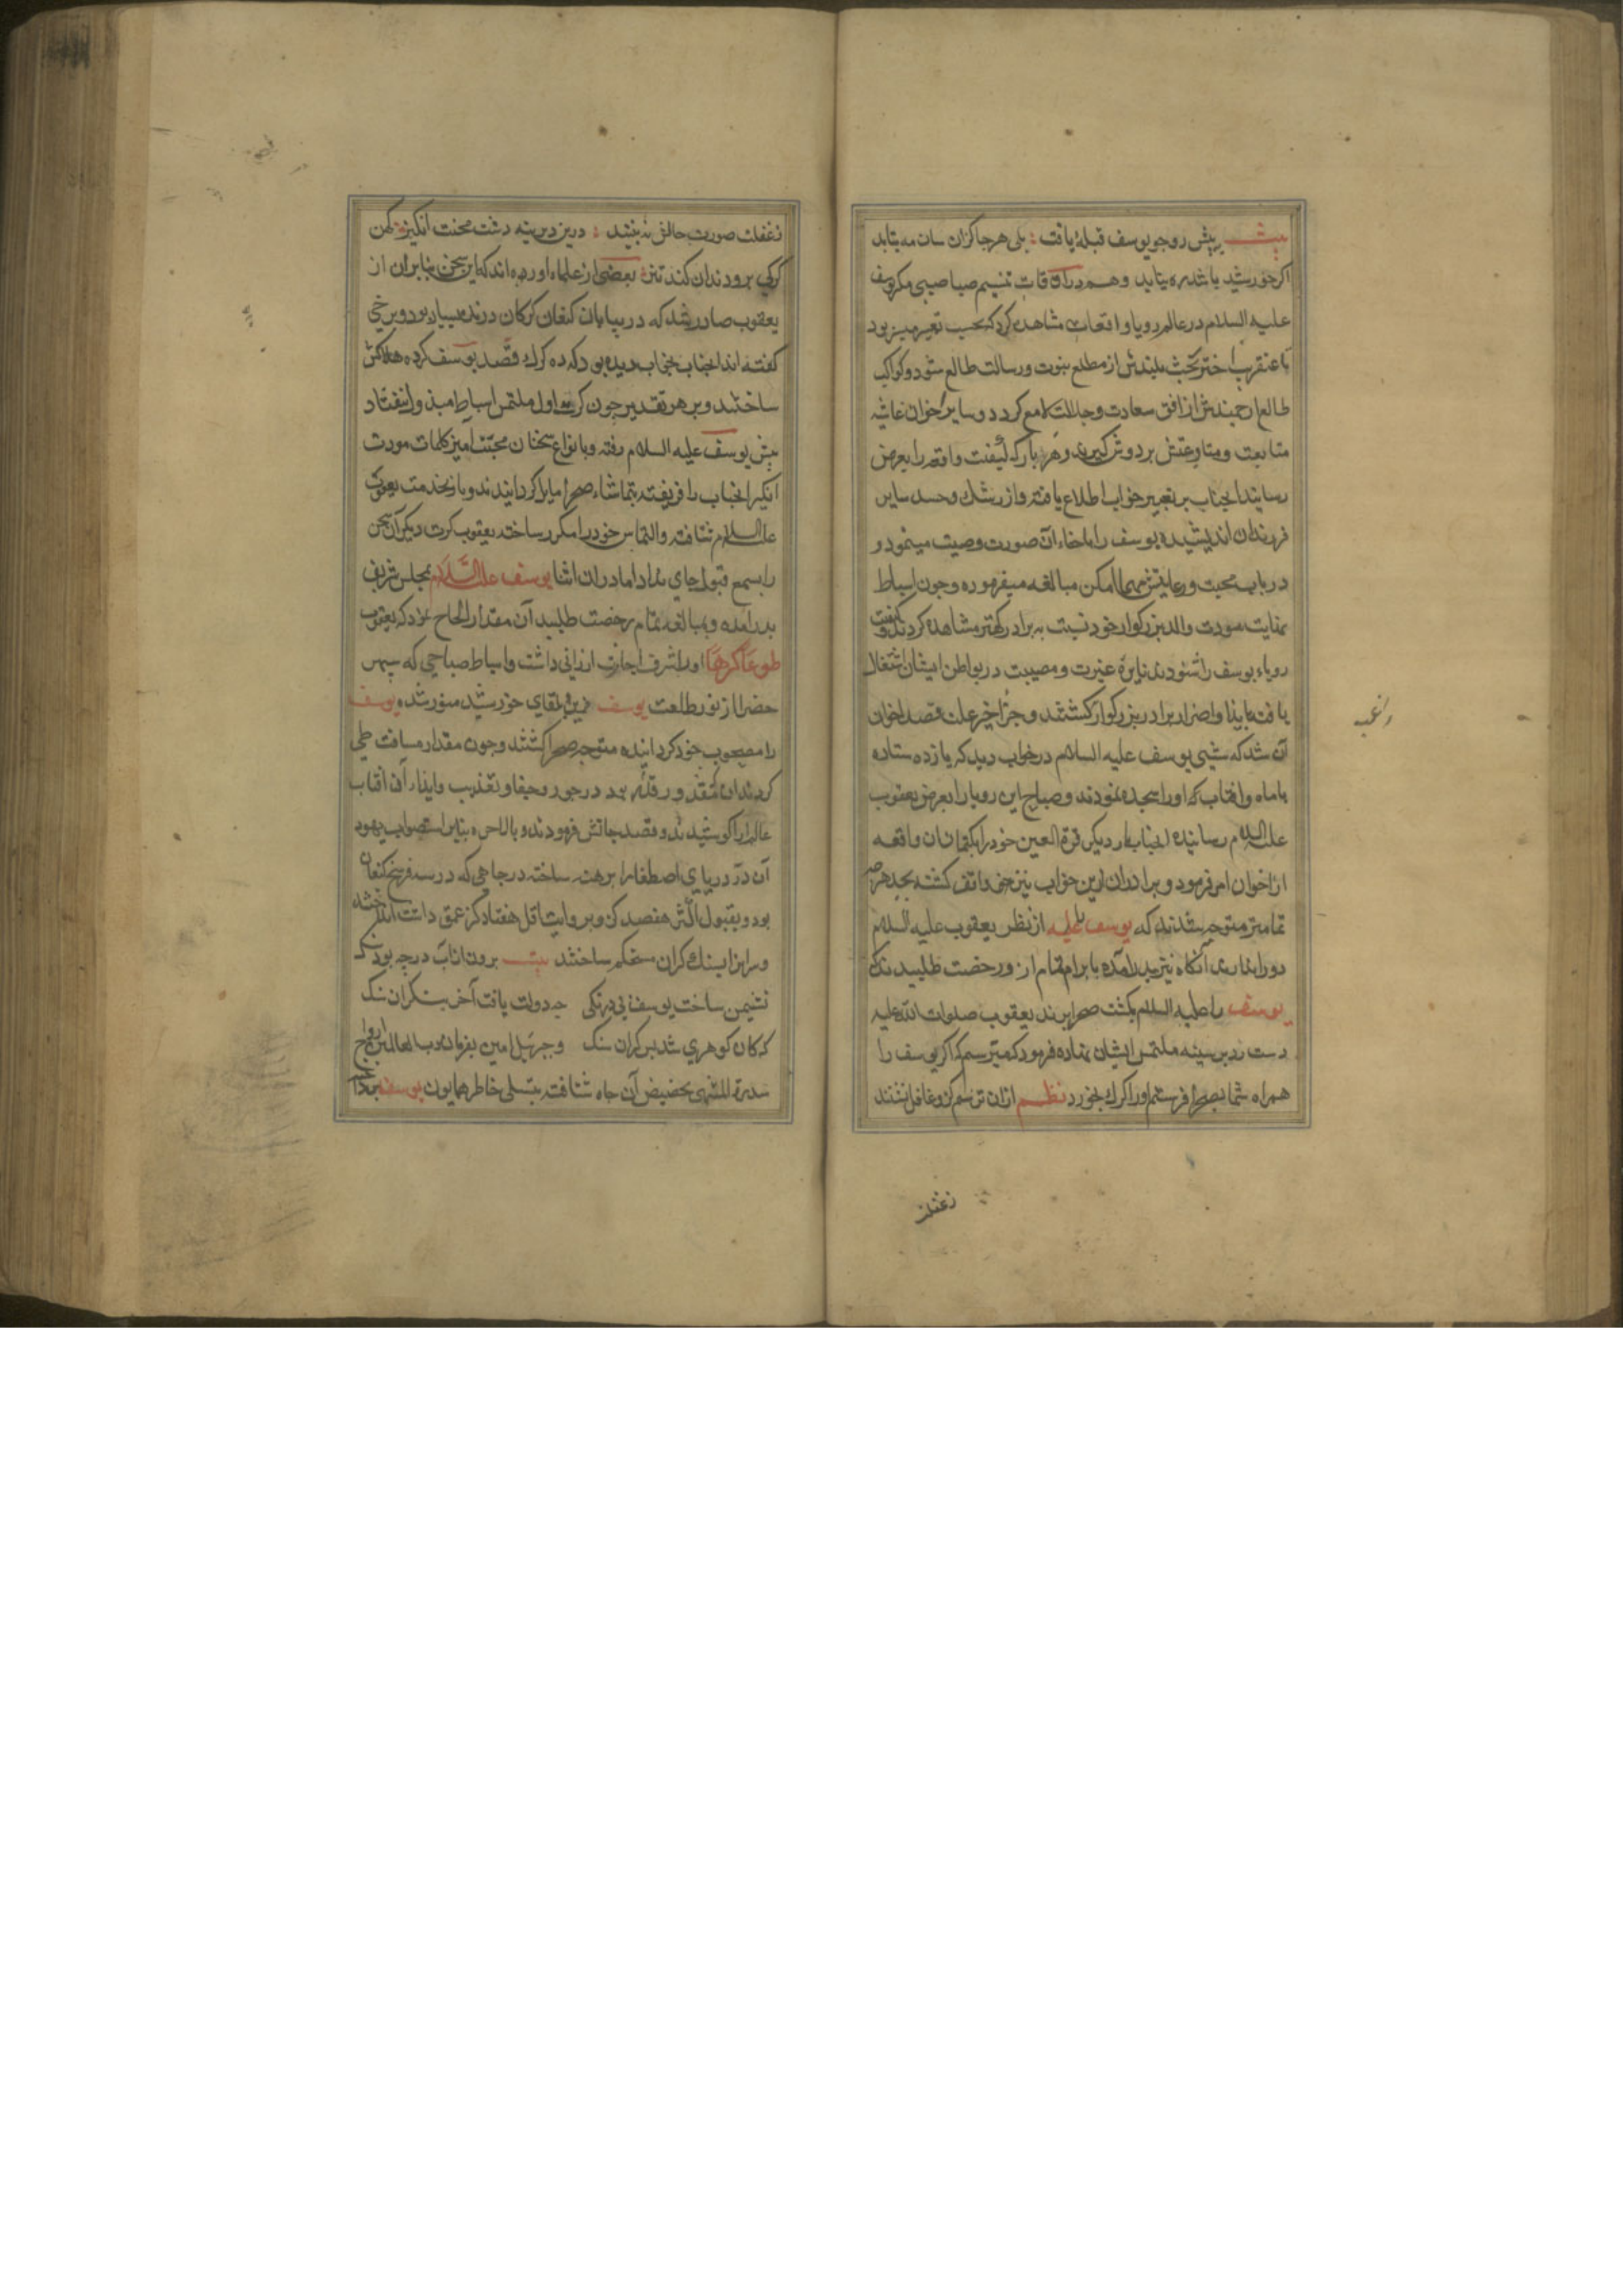 بیت پیش روجو یوسف قبلهٔ یافت بلی هرجا کزان سان مه بتابد
اکر خورشید باشد ره بتابد وهم دران اوقات تنسیم صبا صبی مکر یوسف
علیه السلام در عالم رویا واقعات مشاهده کرد که بحسب تعبیر
با عنقریب اختر بخت بلندش از مطلع نبوت ورسالت طالع شود وکواکب
طالع ارجمندش از افق سعادت وجلالت لامع کردد وسایر اخوان غاشیه
متابعت ومتاوعتش بردوش کیرند وهر بار که کیفیت واقعه را بعرض
رسانید انجناب بر تعبیر خواب اطلاع یافته واز رشك وحسد سایر
فرزندان اندیشیده یوسف را باخفاء آن صورت وصیت مینمود و
در باب محبت ورعایتش مهما امکن مبالغه میفرموده وجون اسباط
عنایت مودت والد بزرکوار خود نسبت به برادر کهتر مشاهده کردند وکیفیت
رویاء یوسف را شنودند نایرهٔ غیرت ومصیبت در بواطن ایشان اشتغال
یافت بایذا واضرار برادر بزرکوار کشتند وجزء اخیر علت قصد اخوان
آن شد که شبی یوسف علیه السلام در خواب دید که یازده ستاره
با ماه وافتاب که اورا سجده نمودند وصباح این رویا را بعرض یعقوب
علیه السلام رسانیده انجناب بار دیکر قرة العین خود را بکتمان ان واقعه
از اخوان امر فرمود وبرادران ازین خواب نیز واقف کشته بجد هرچه
تمامتر متوجه شدند که یوسف علیه از نظر یعقوب علیه السلام
دور اندازند آنکاه نزد پدر آمده بابرام تمام از ورخصت طلبیدند که
یوسف را علیه السلام بکشت صحرا برند یعقوب صلوات الله علیه
دست رد بر سینه ملتمس ایشان نهاده فرمود که میترسم که اکر یوسف را
همراه شما بصحرا فرستم اورا کرك بخورد نظم ازان ترسم کزو غافل نشنند
زغفلت
زغفلت صورت حالش نه بینند درین دیرینه دشت محنت انکیز کهن
کرکی برو دندان کند تیز بعضی از علماء اورده اند که این سخن بنابران از
یعقوب صادر شد که در بیابان کنعان کرکان درنده بسیار بود وبرخی
کفته اند انجناب بخواب دیده بود که ده کرك قصد یوسف کرده هلاکش
ساختند وبر هر تقدیر چون کرت اول ملتمس اسباط مبذول نیفتاد
پیش یوسف علیه السلام رفته وبانواع سخنان محبت امیز کلمات مودت
انکیز انجناب را فریفته بتماشاء صحرا مایل کردانیدند وباز بخدمت یعقوب
علیه السلام شتافته والتماس خود را مکرر ساخته یعقوب کرت دیکر آن سخن
را بسمع قبول جای نداد اما دران اثنا یوسف علیه السلام بمجلس شریف
پدر امده وبمبالغه تمام رخصت طلبید آن مقدار الحاح نمود که یعقوب
طوعا کرها اورا شرف اجازت ارزانی داشت واسباط صباحی که سپهر
حضرا از نور طلعت یوسف زرین بلقای خورشید منور شده یوسف
را مصحوب خود کردانیده متوجه صحرا کشتند وجون مقدار مسافت طی
کردند در جور وجفا وتعذیب وایذاء آن افتاب
عالم ارا کوشیدند وقصد جانش فرمودند وبالاخره بنابر استصواب یهود
آن در دریای اصطفا را برهنه ساخته در جاهی که در سه فرسخ کنعان
بود وبقول اکثر هفصد کز وبروایت اقل هفتاد کز عمق داشت انداخته
وسر انرا بسنك کران مستحکم ساختند بیت برون از آب درجه بود سنك
نشیمن ساخت یوسف بی درنکی جه دولت یافت آخر بنکر ان سنك
که کان کوهری شد بس کران سنك وجبرئیل امین بفرمان رب العالمین از اوج
سدرة المنتهی بحضیض آن جاه شتافته بتسلی خاطر همایون یوسف